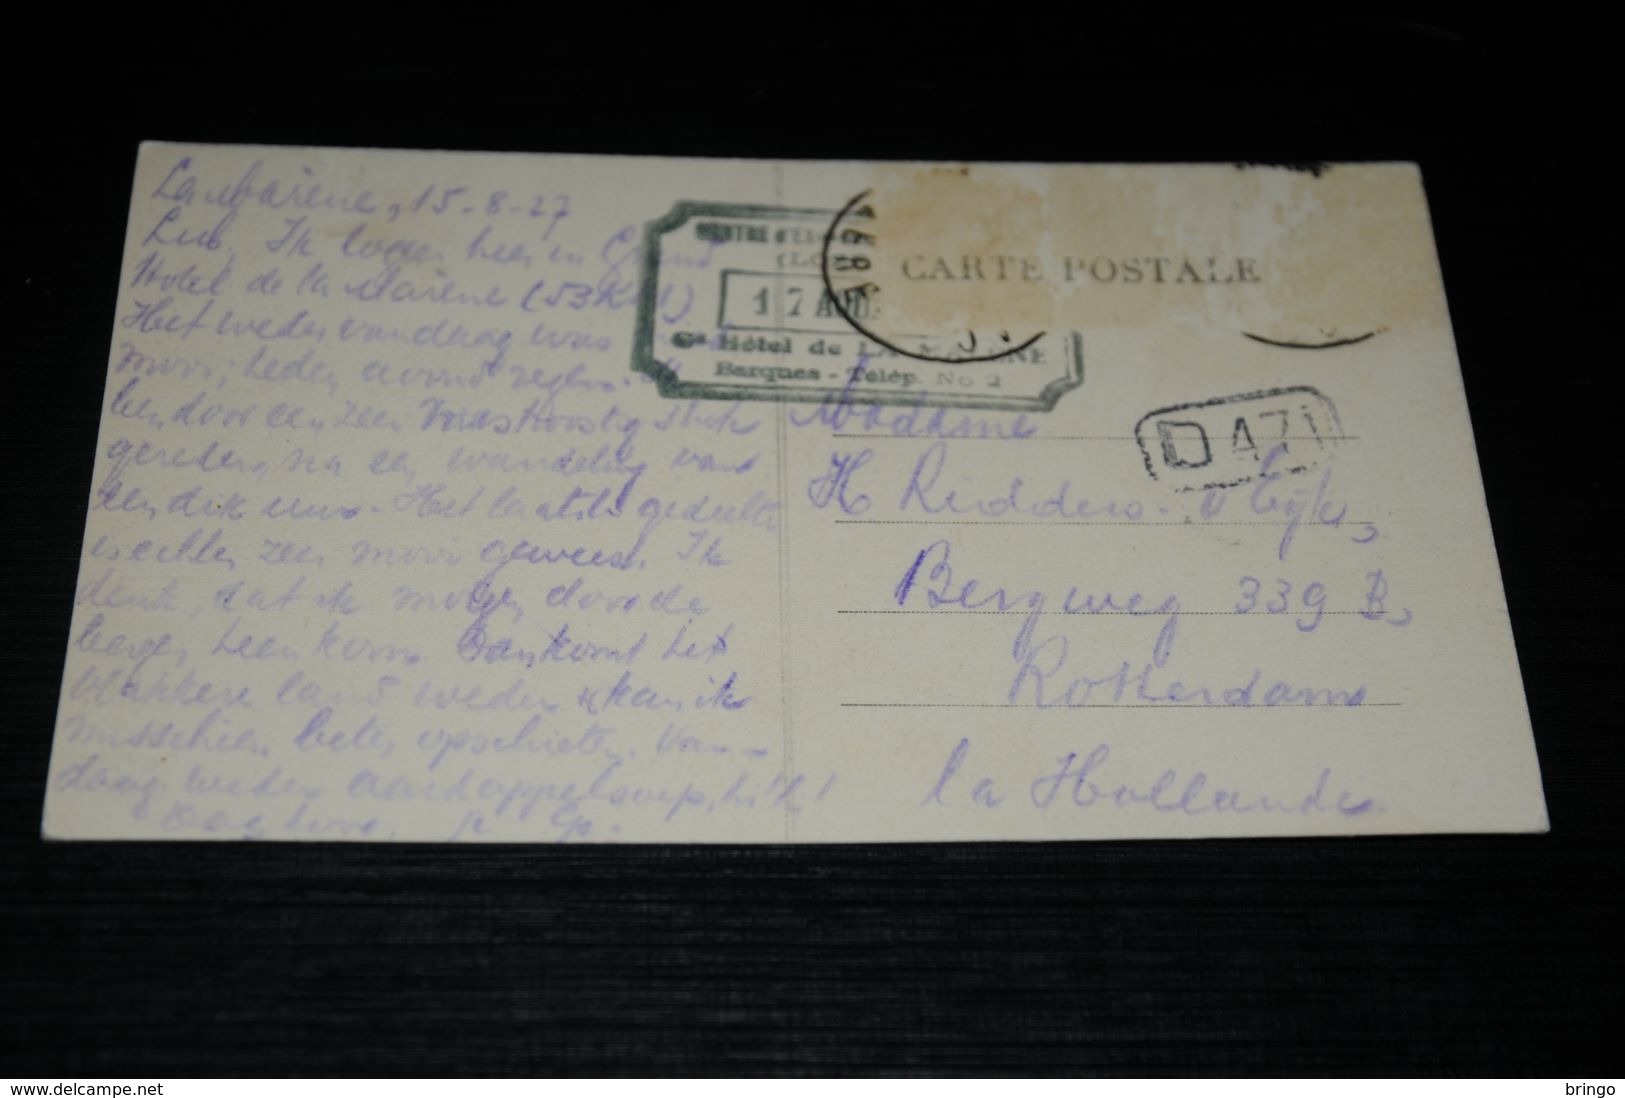 La Malène, 15-8-27
Ik logeer hier in Grand
Hotel de la Malène (53 K.M.)
Het weder vandaag was
mooi; heden avond regen. Ik
ben door een zeer woest rotsig stuk
gereden, na een wandeling van
een dik uur. Het laatste gedeelte
is echter zeer mooi geweest. Ik
denk, dat ik morgen door de
bergen heen kom. Dan komt het
vlakkere land weder & kan ik
misschien beter opschieten. Van-
daag weder aardappelsoep, hik!
CENTRE D'EX
(LO
17 AOU
Gd Hôtel de LA MALÈNE
Barques - Télép. No 2
CARTE POSTALE
D 471
Madame
H Ridders. v Eyk,
Bergweg 339 B,
Rotterdam
la Hollande
delcampe.net
bringo